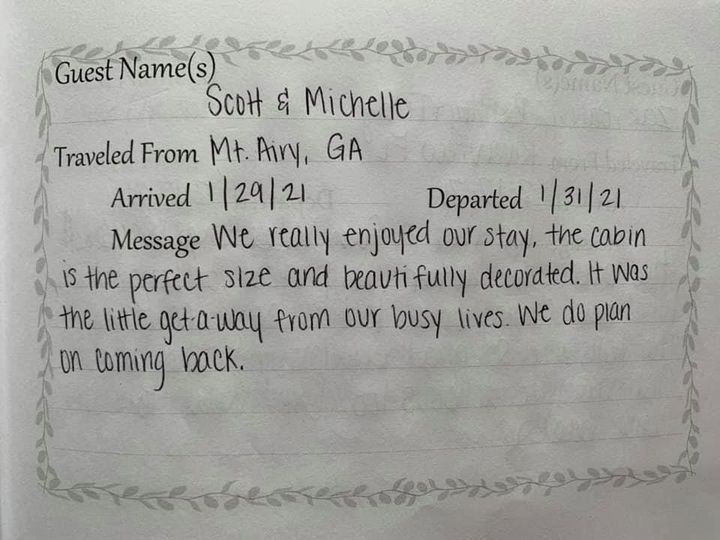 Guest Name(s)
Scott & Michelle
Traveled From Mt. Airy, GA
Arrived 1/29/21 Departed 1/31/21
Message We really enjoyed our stay, the cabin
is the perfect size and beautifully decorated. It was
the little get-a-way from our busy lives. We do plan
on coming back.